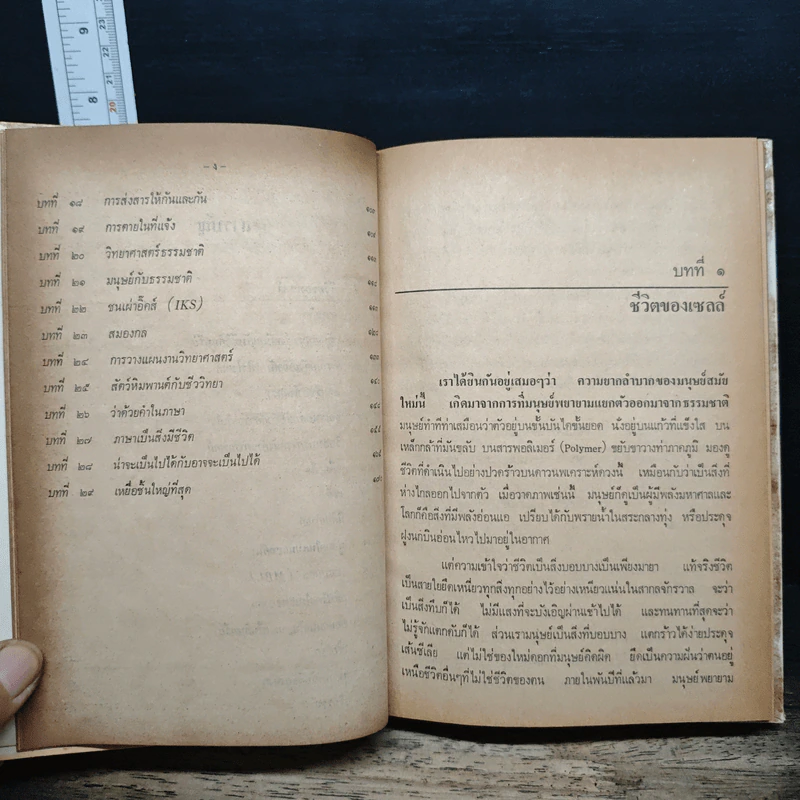 9
8
23
22
21
20
- ง -
บทที่ ๑๘ การส่งสารให้กันและกัน
บทที่ ๑๙ การตายในที่แจ้ง
บทที่ ๒๐ วิทยาศาสตร์ธรรมชาติ
บทที่ ๒๑ มนุษย์กับธรรมชาติ
บทที่ ๒๒ ชนเผ่าอิ๊คส์ (IKS)
บทที่ ๒๓ สมองกล
บทที่ ๒๔ การวางแผนงานวิทยาศาสตร์
บทที่ ๒๕ สัตว์หิมพานต์กับชีววิทยา
บทที่ ๒๖ ว่าด้วยคำในภาษา
บทที่ ๒๗ ภาษาเป็นสิ่งมีชีวิต
บทที่ ๒๘ น่าจะเป็นไปได้กับอาจจะเป็นไปได้
บทที่ ๒๙ เหยื่อชิ้นใหญ่ที่สุด
บทที่ ๑
ชีวิตของเซลล์
เราได้ยินกันอยู่เสมอๆว่า ความยากลำบากของมนุษย์สมัย
ใหม่นี้ เกิดมาจากการที่มนุษย์พยายามแยกตัวออกมาจากธรรมชาติ
มนุษย์ทำทีท่าเสมือนว่าตัวอยู่บนขั้นบันไดขั้นยอด นั่งอยู่บนแก้วที่แข็งใส บน
เหล็กกล้าที่มันขลับ บนสารพอลิเมอร์ (Polymer) ขยับขาวางท่าภาคภูมิ มองดู
ชีวิตที่ดำเนินไปอย่างปวดร้าวบนดาวนพเคราะห์ดวงนี้ เหมือนกับว่าเป็นสิ่งที่
ห่างไกลออกไปจากตัว เมื่อวาดภาพเช่นนี้ มนุษย์ก็ดูเป็นผู้มีพลังมหาศาลและ
โลกก็คือสิ่งที่มีพลังอ่อนแอ เปรียบได้กับพรายน้ำในสระกลางทุ่ง หรือประดุจ
ฝูงนกบินอ่อนไหวไปมาอยู่ในอากาศ
แต่ความเข้าใจว่าชีวิตเป็นสิ่งบอบบางเป็นเพียงมายา แท้จริงชีวิต
เป็นสายใยยึดเหนี่ยวทุกสิ่งทุกอย่างไว้อย่างเหนียวแน่นในสากลจักรวาล จะว่า
เป็นสิ่งทึบก็ได้ ไม่มีแสงที่จะบังเอิญผ่านเข้าไปได้ และทนทานที่สุดจะว่า
ไม่รู้จักแตกดับก็ได้ ส่วนเรามนุษย์เป็นสิ่งที่บอบบาง แตกร้าวได้ง่ายประดุจ
เส้นซีเลีย แต่ไม่ใช่ของใหม่ดอกที่มนุษย์คิดผิด ยึดเป็นความฝันว่าตนอยู่
เหนือชีวิตอื่นๆที่ไม่ใช่ชีวิตของตน ภายในพันปีที่แล้วมา มนุษย์พยายาม